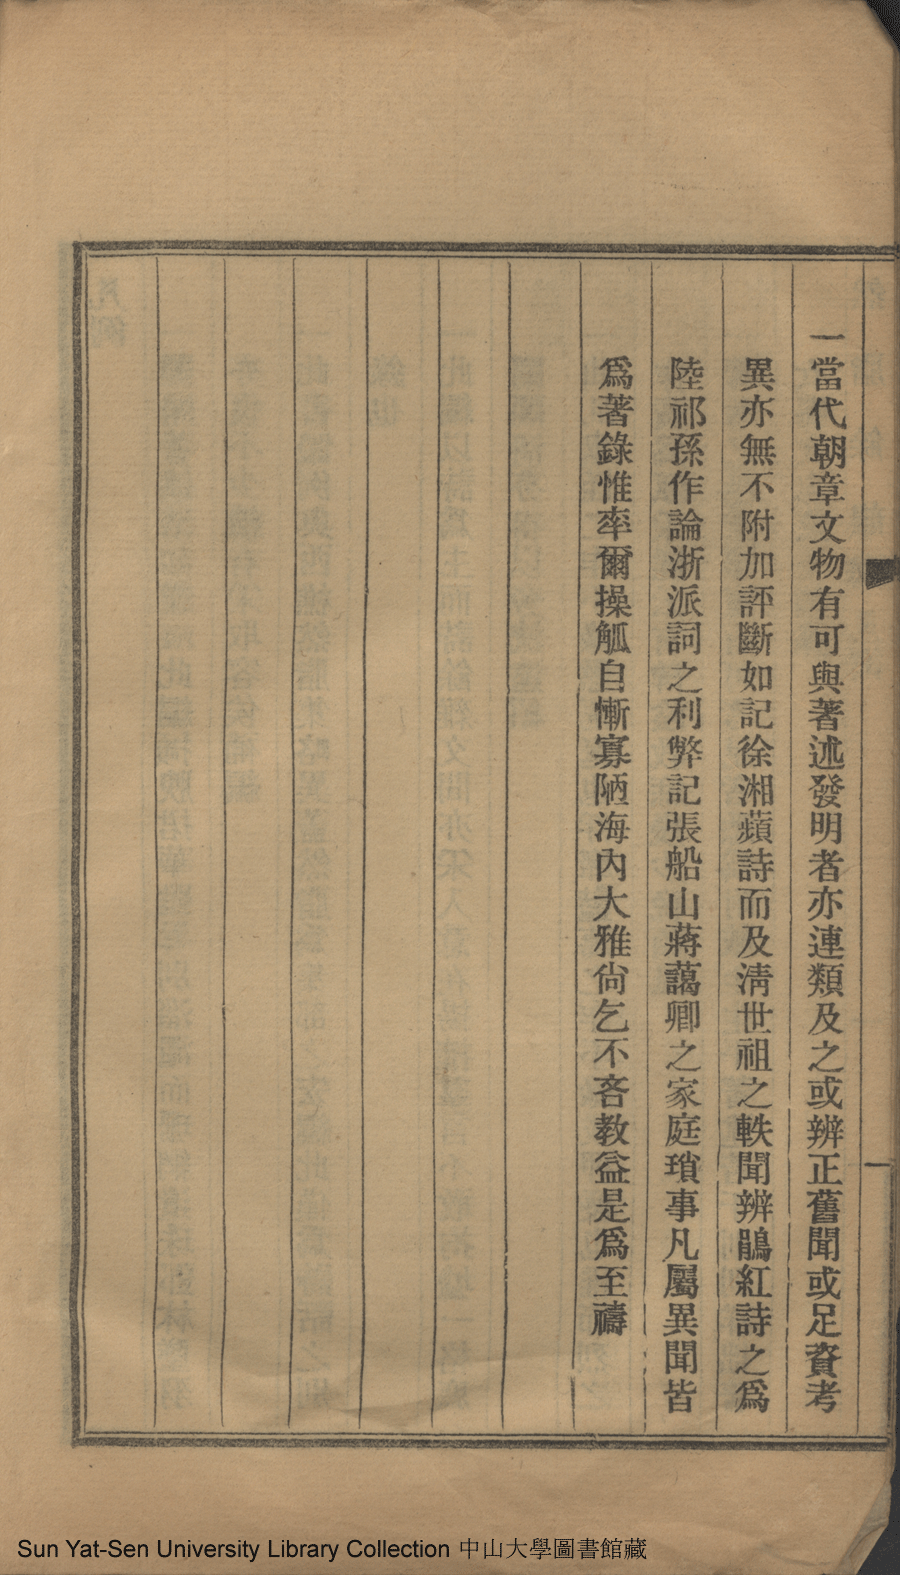 一當代朝章文物有可與著述發明者亦連類及之或辨正舊聞或足資考
異亦無不附加評斷如記徐湘蘋詩而及淸世祖之軼聞辨鵑紅詩之爲
陸祁孫作論浙派詞之利弊記張船山蔣藹卿之家庭瑣事凡屬異聞皆
爲著錄惟率爾操觚自慚寡陋海內大雅尙乞不吝教益是爲至禱
Sun Yat-Sen University Library Collection 中山大學圖書館藏